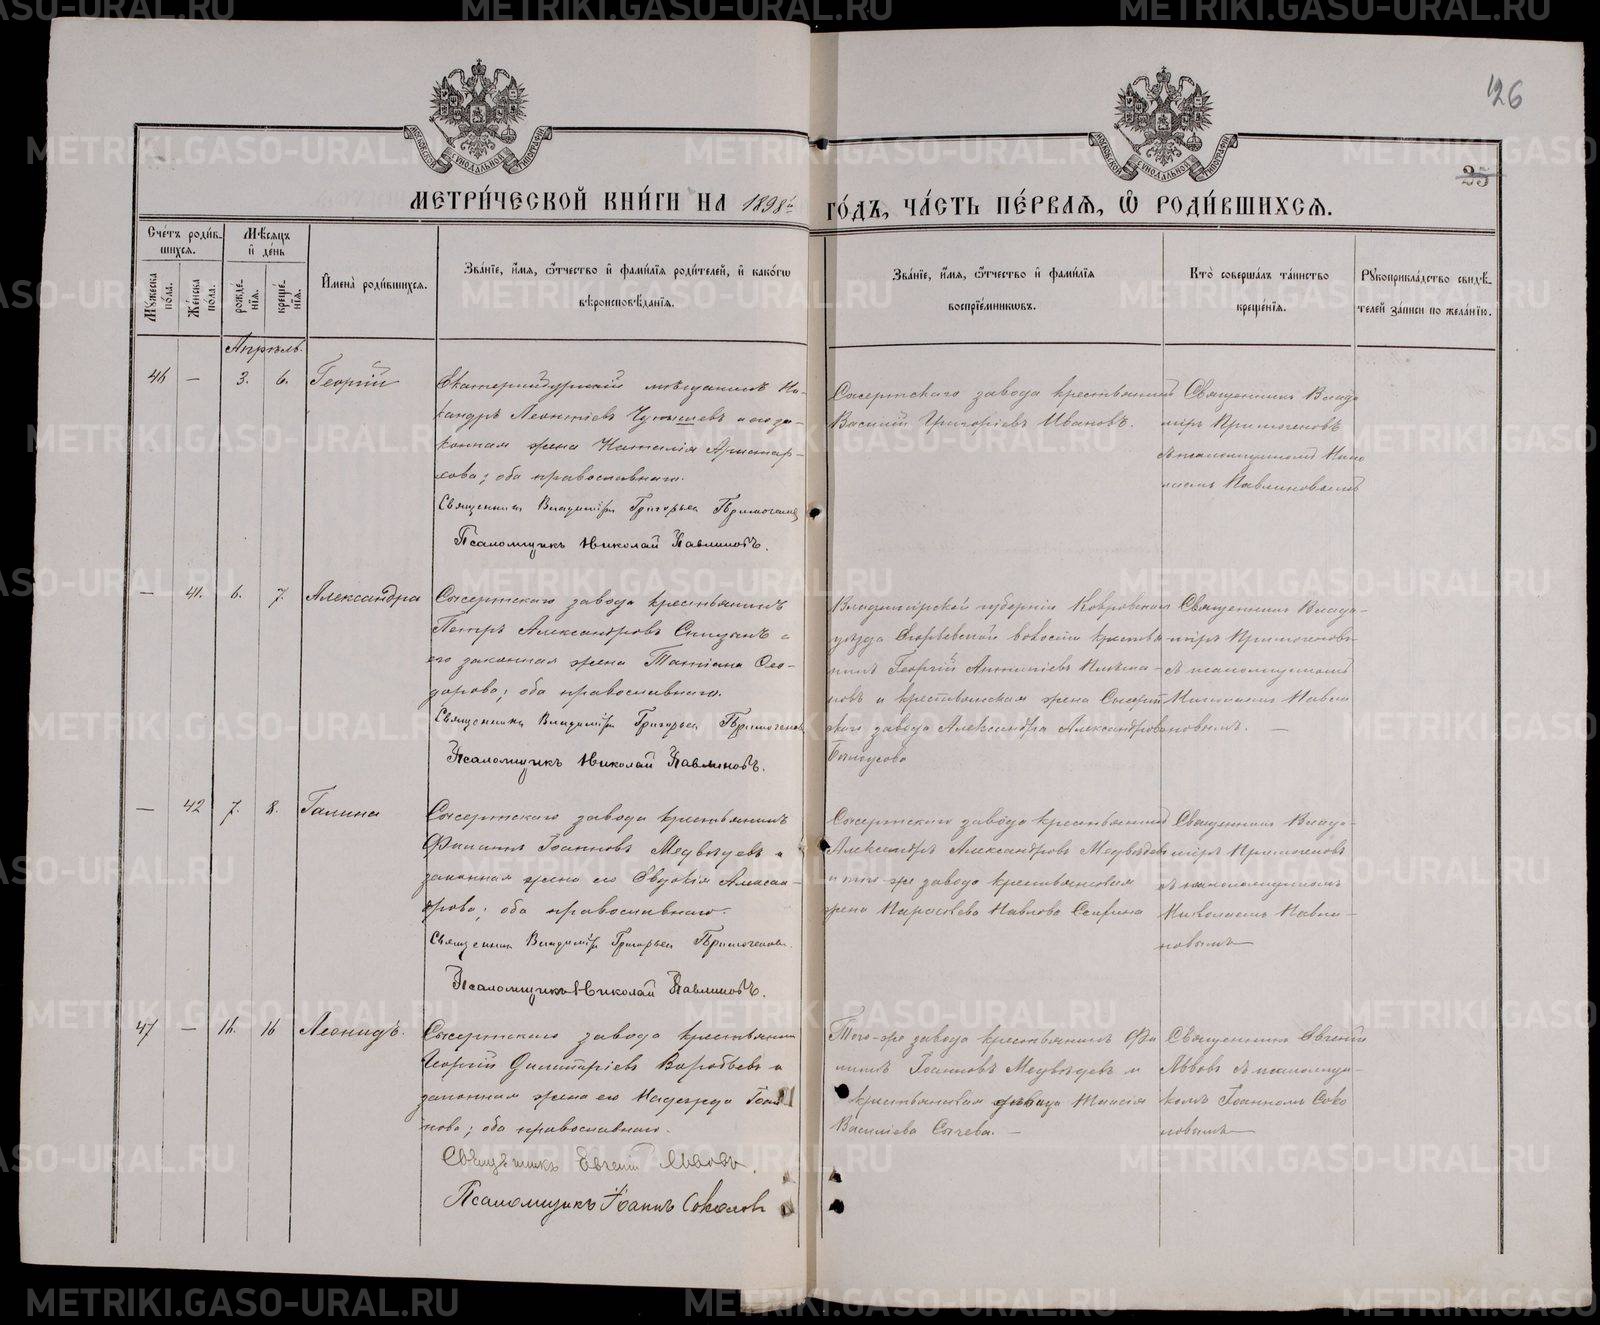 126
25
МОСКОВСКОЙ СѴНОДАЛЬНОЙ ТИПОГРАФІИ
МОСКОВСКОЙ СѴНОДАЛЬНОЙ ТИПОГРАФІИ
МЕТРИ́ЧЕСКОЙ КНИ́ГИ НА 1898й ГО́ДЪ, ЧА́СТЬ ПЕ́РВАЯ, Ѽ РОДИ́ВШИХСЯ.
Сче́тъ роди́в-
шихся.
Мꙋ́жеска по́ла.
Же́нска по́ла.
Мѣ́сяцъ
и҆ де́нь
рожде́нїя.
креще́нїя.
И҆мена̀ роди́вшихся.
Зва́нїе, и҆́мя, ѻ҆́тчество и҆ фами́лїя роди́телей, и҆ како́гѡ
вѣроисповѣ́данїя.
Зва́нїе, и҆́мя, ѻ҆́тчество и҆ фами́лїя
воспрїе́мникѡвъ.
Кто̀ соверша́лъ та́инство
креще́нїя.
Рꙋкоприкла́дство свидѣ́-
телей за́писи по жела́нїю.
Апрѣль.
46 — 3. 6. Георгій
Екатеринбургскій мѣщанинъ Ни-
кандръ Леонтіевъ и его за-
конная жена Наталія Аристар-
хова; оба православнаго.
Священникъ Владиміръ Григорьевъ Примогеновъ
Псаломщикъ Николай Павлиновъ.
Сысертскаго завода крестьянинъ
Василій Григоріевъ Ивановъ.
Священникъ Влади
міръ Примогеновъ
съ псаломщикомъ Нико
лаемъ Павлиновымъ
— 41. 6. 7. Александра
Сысертскаго завода крестьянинъ
Петръ Александровъ и
его законная жена Татіана Ѳео-
дорова; оба православнаго.
Священникъ Владиміръ Григорьевъ Примогеновъ
Псаломщикъ Николай Павлиновъ.
Владимірской губерніи Ковровскаго
уѣзда волости крестья
нинъ Георгій Антипіевъ
и крестьянская жена Сысерт
скаго завода Александра Александрова
Священникъ Влади-
міръ Примогеновъ
съ псаломщикомъ
Николаемъ Павли
новымъ. —
— 42 7. 8. Галина
Сысертскаго завода крестьянинъ
Филиппъ Іоанновъ Медвѣдевъ и
законная жена его Евдокія Алексан-
дрова; оба православнаго.
Священникъ Владиміръ Григорьевъ Примогеновъ.
Псаломщикъ Николай Павлиновъ.
Сысертскаго завода крестьянинъ
Александръ Александровъ Медвѣдевъ
и того-же завода крестьянская
жена Параскева Павлова
Священникъ Влади-
міръ Примогеновъ
съ псаломщикомъ
Николаемъ Павли-
новымъ
47 — 14. 16 Леонидъ.
Сысертскаго завода крестьянинъ
Георгій Димитріевъ Воробьевъ и
законная жена его Надежда Іоан
нова; оба православнаго.
Священникъ Евгеній Львовъ.
Псаломщикъ Іоаннъ Соколовъ
Того-же завода крестьянинъ Фи
липпъ Іоанновъ Медвѣдевъ и
крестьянская дѣвица Таисія
Василіева Сычева. —
Священникъ Евгеній
Львовъ съ псаломщи-
комъ Іоанномъ Соко
ловымъ
METRIKI.GASO-URAL.RU